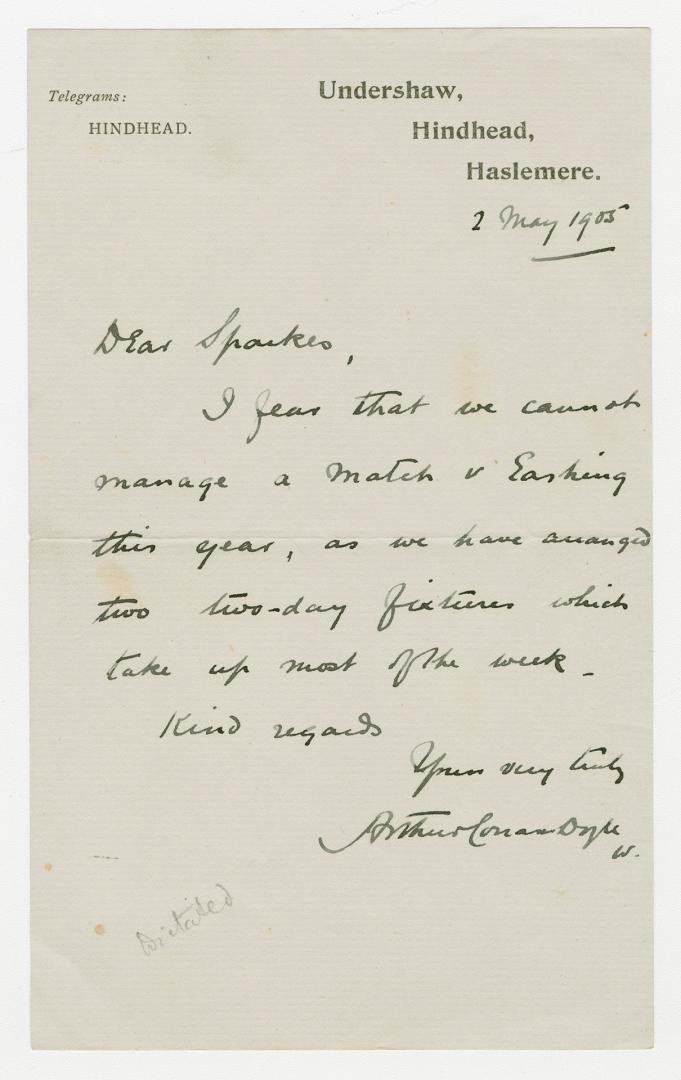 Telegrams:
HINDHEAD.
Undershaw,
Hindhead,
Haslemere.
2 May 1905
Dear Sparkes,
I fear that we cannot
manage a match v Eashing
this year, as we have arranged
two two-day fixtures which
take up most of the week -
Kind regards
Yours very truly
Arthur Conan Doyle
W.
Dictated